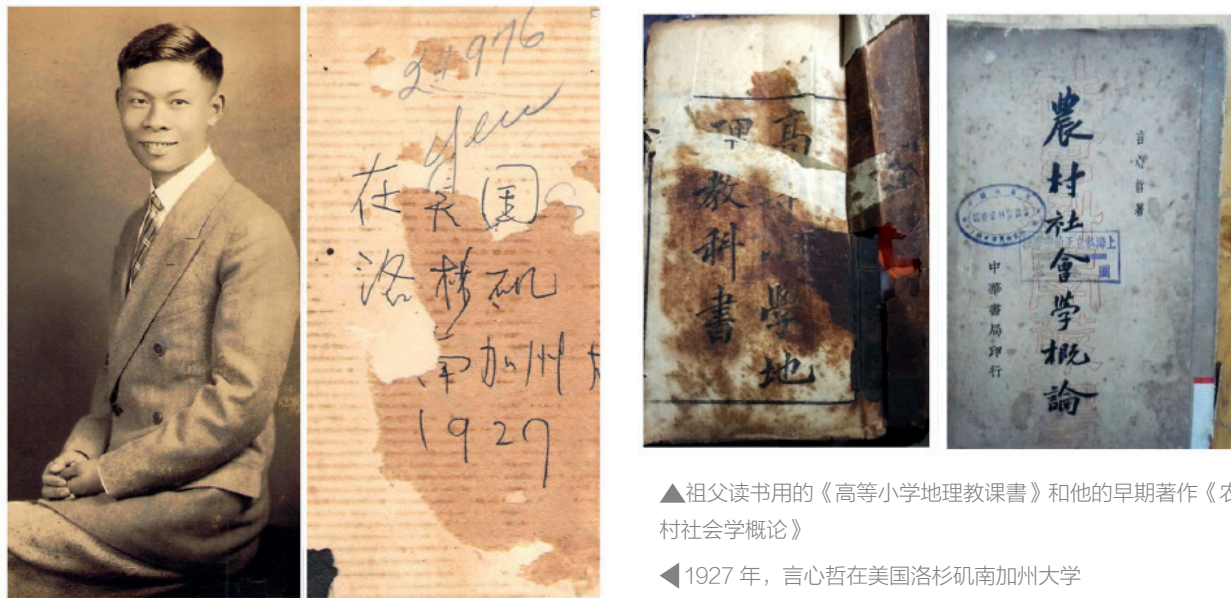 24976
Yen
在美国
洛杉矶
南加州大
1927
高等小學地
理教科書
言心哲著
農村社會学概論
中華書局印行
▲祖父读书用的《高等小学地理教课書》和他的早期著作《农
村社会学概论》
◀1927 年，言心哲在美国洛杉矶南加州大学